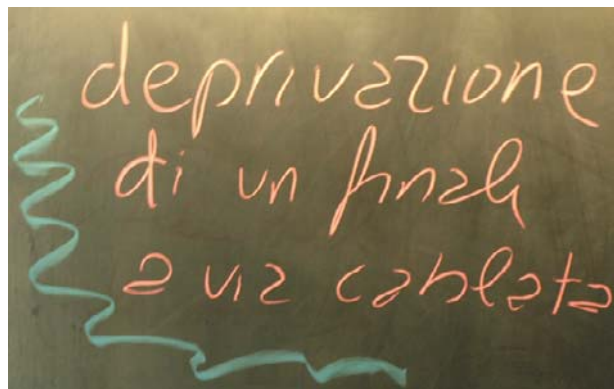 deprivazione
di un finale
a via cablata